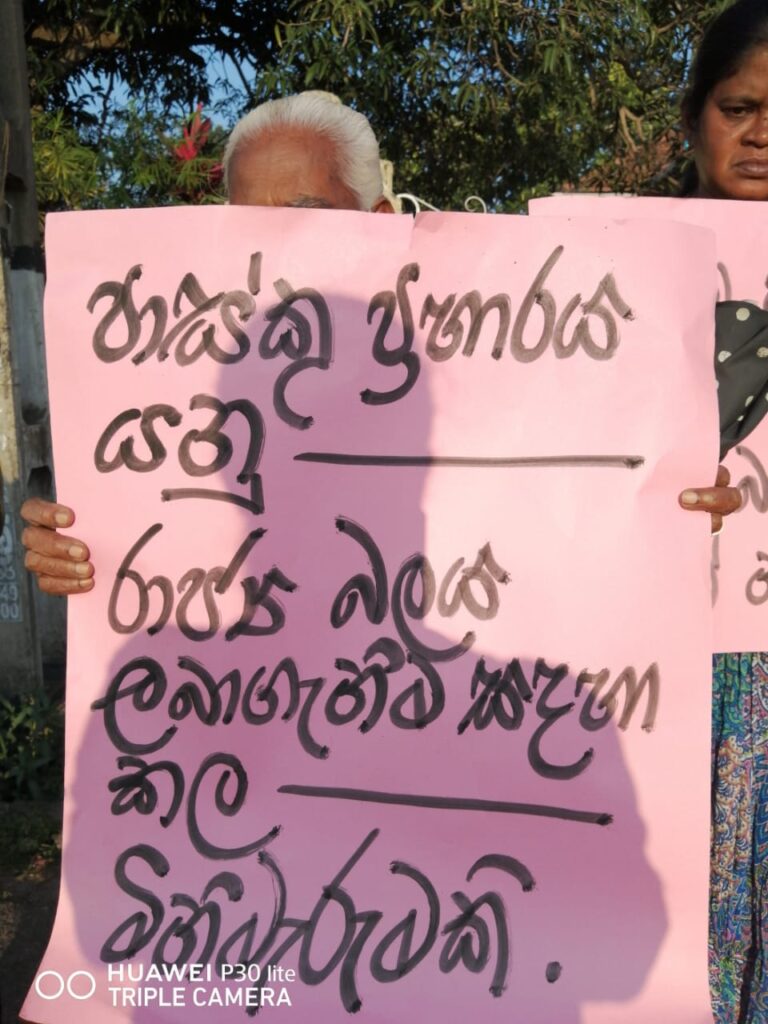 පාස්කු ප්‍රහාරය
යනු
රාජ්‍ය බලය
ලබාගැනීම සඳහා
කල
මිනීමැරුමකි.
HUAWEI P30 lite
TRIPLE CAMERA